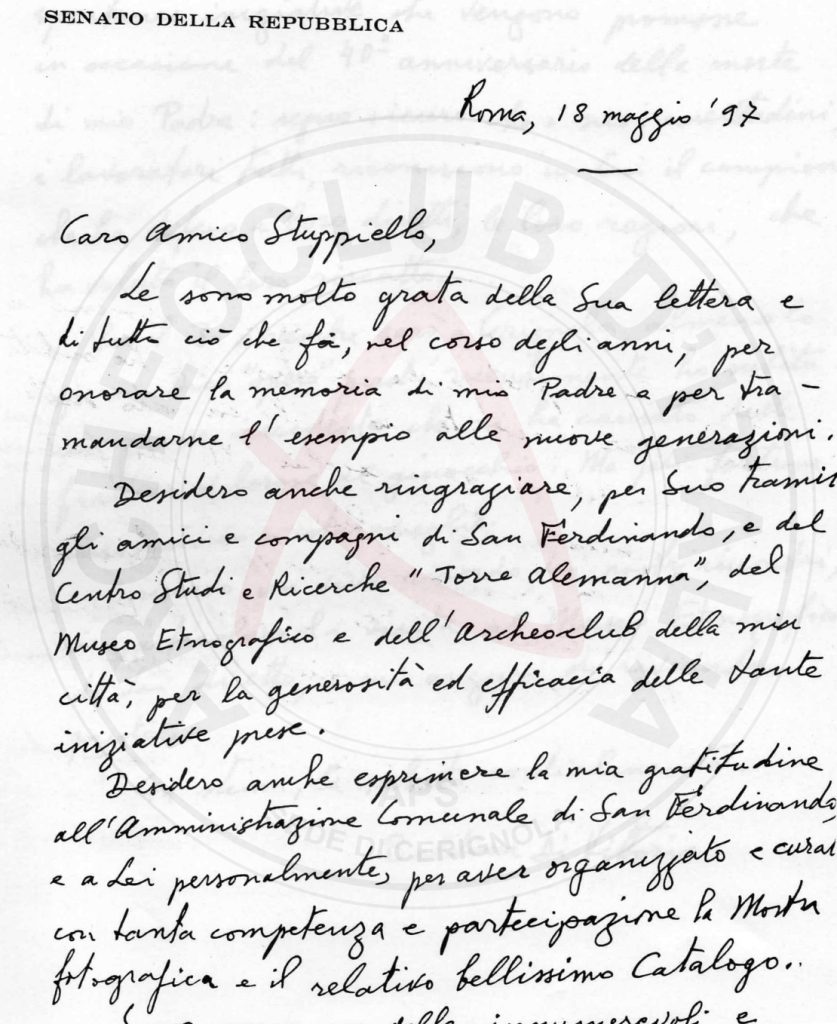 SENATO DELLA REPUBBLICA
Roma, 18 maggio '97
Caro Amico Stuppiello,
Le sono molto grata della Sua lettera e
di tutto ciò che fà, nel corso degli anni, per
onorare la memoria di mio Padre e per tra-
mandarne l'esempio alle nuove generazioni.
Desidero anche ringraziare, per Suo tramit
gli amici e compagni di San Ferdinando, e del
Centro Studi e Ricerche "Torre Alemanna", del
Museo Etnografico e dell'Archeoclub della mia
città, per la generosità ed efficacia delle tante
iniziative prese.
Desidero anche esprimere la mia gratitudine
all'Amministrazione Comunale di San Ferdinando,
e a Lei personalmente, per aver organizzato e curat
con tanta competenza e partecipazione la Mostra
fotografica e il relativo bellissimo Catalogo.
della innumerevoli e
ARCHEOCLUB D'ITALIA
APS
SEDE DI CERIGNOLA